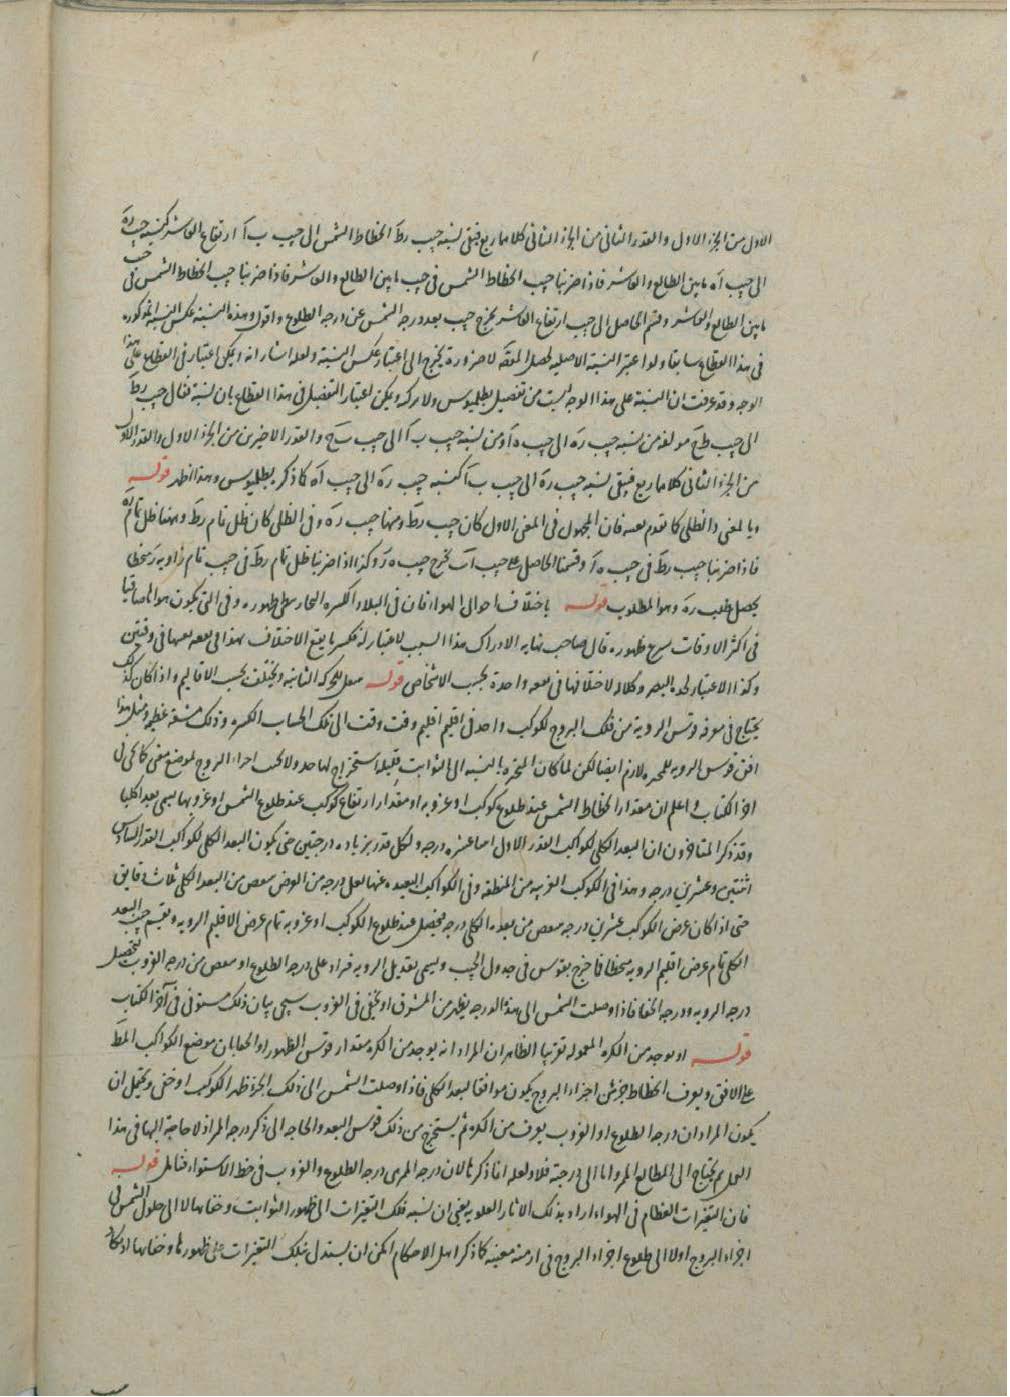 الاول من الجزء الاول والقدر الثانى من الجزء الثانى كلاهما ربع فيبقى نسبة جيب رط انحطاط الشمس الى جيب ب آ ارتفاع العاشر كنسبة جيب ره
الى جيب آه ما بين الطالع والعاشر فاذا ضربنا جيب انحطاط الشمس فى جيب ما بين الطالع والعاشر فاذا ضربنا جيب انحطاط الشمس فى جيب
ما بين الطالع والعاشر وقسم الحاصل الى جيب ارتفاع العاشر يخرج جيب بعد درجه الشمس عن درجه الطلوع واقول وهذه النسبة عكس النسبة المذكوره
فى هذا القطاع سابقا ولو اعتبر النسبة الاصليه لحصل المقصد لا ضرورة يخرج الى اعتبار عكس النسبة ولعله اشار انه يمكن اعتبار فى القطاع على هذا
الوجه وقد عرفت ان النسبة على هذا الوجه ليست من تفصيل بطلميوس ولا تركه ويمكن اعتبار التفصيل فى هذا القطاع بان نسبة فقال جيب رط
الى جيب طح مولفة من نسبة جيب ره الى جيب ه آ ومن نسبة جيب ب آ الى جيب ب ح والقدر الاخيرين من الجزء الاول والقدر الاول
من الجزء الثانى كلاهما ربع فيبقى نسبة جيب ره الى جيب ب آ كنسبة جيب ره الى جيب آه كما ذكر بطلميوس وهذا اظهر قوله
وبالمغنى والظلى كما تقدم بعينه فان المجهول فى المغنى الاول كان جيب رط وههنا جيب ره وفى الظلى كان ظل تمام رط وههنا ظل تمام ره
فاذا ضربنا جيب رط فى جيب ه آ وقسمنا الحاصل على جيب آب خرج جيب ه ر وكذا اذا ضربنا ظل تمام رط فى جيب تمام زاويه ر منحطا
يحصل ره وهو المطلوب قوله باختلاف احوال الهواء فان فى البلاد الكثيره البخار يبطى ظهوره وفى التى يكون هواها صافيا
فى اكثر الاوقات يسرع ظهوره قال صاحب نهايه الادراك هذا السبب لا اعتبار له يقع الاختلاف بهذا فى بقعه بعينها فى وقتين
وكذا لا اعتبار لحدة البصر وكلاله لاختلافها فى بقعه واحدة بحسب الاشخاص قوله الحركة الثانية ويختلف بحسب الاقاليم واذا كان كذلك
يحتاج فى معرفه قوس الرويه من فلك البروج لكوكب واحد فى اقليم اقليم وقت وقت الى تلك الحساب الكثيره وذلك مشقه عظيمه ومثل هذا
افق قوس الرويه للمتحيره لازم ايضا لكن لما كان المتحيره بالنسبه الى الثوابت قليله استخراج لها حدود لا بحسب اجزاء البروج لموضع معين كما يجى فى
اخر الكتاب واعلم ان مقدار انحطاط الشمس عند طلوع كوكب او غروبه او مقدار ارتفاع كوكب عند طلوع الشمس او غروبها يسمى بعدا كليا
وقد ذكر المتاخرون ان البعد الكلى لكواكب القدر الاول اثنا عشره درجه ولكل قدر بزياده درجتين حتى يكون البعد الكلى لكواكب القدر السادس
اثنتين وعشرين درجه وهذا فى الكوكب القريبه من المنطقه وفى الكواكب البعيده عنها لكل درجه من العرض ينقص من البعد الكلى ثلاث دقايق
حتى اذا كان عرض الكوكب عشرين درجه ينقص من بعده الكلى درجه فيحصل عند طلوع الكوكب او غروبه تمام عرض الاقليم الرويه ويقسم جيب البعد
الكلى تمام عرض اقليم الرويه منحطا فما خرج يقوس فى جدول الجيب ويسمى تعديل الرويه فيزاد على درجه الطلوع او ينقص من درجه الغروب ليحصل
درجه الرويه ودرجه الخفا فاذا وصلت الشمس الى هذا الدرجه يظهر من المشرق او يخفى فى الغروب سيجى بيان ذلك مستوفى فى آخر الكتاب
قوله او يوجد من الكره المعموله تقريبا الظاهر ان المراد انه يوجد من الكره مقدار قوس الظهور او الخفا بان موضع الكواكب المط
على الافق ويعرف انحطاط جزء من اجزاء البروج يكون موافقا لبعد الكلى فاذا وصلت الشمس الى ذلك الجزء ظهر الكوكب او خفى ويحتمل ان
يكون المراد ان درجه الطلوع او الغروب يعرف من الكره ثم يستخرج من ذلك قوس البعد والحاجه الى ذكر درجه الممر اذ لا حاجة اليها فى هذا
العمل نعم يحتاج الى المطالع الممر واما الى درجته فلا ولعله انما ذكرها لان درجه الممر هى درجة الطلوع والغروب فى خط الاستواء فتامل قوله
فان التغيرات العظام فى الهواء اراد بذلك الاثار العلويه يعنى ان نسبه تلك التغيرات الى ظهور الثوابت وخفائها لا الى حلول الشمس فى
اجزاء البروج اولا الى طلوع اجزاء البروج فى ازمنه معينه كما ذكر اهل الاحكام امكن ان يستدل بتلك التغيرات على ظهورها وخفائها اذ كان